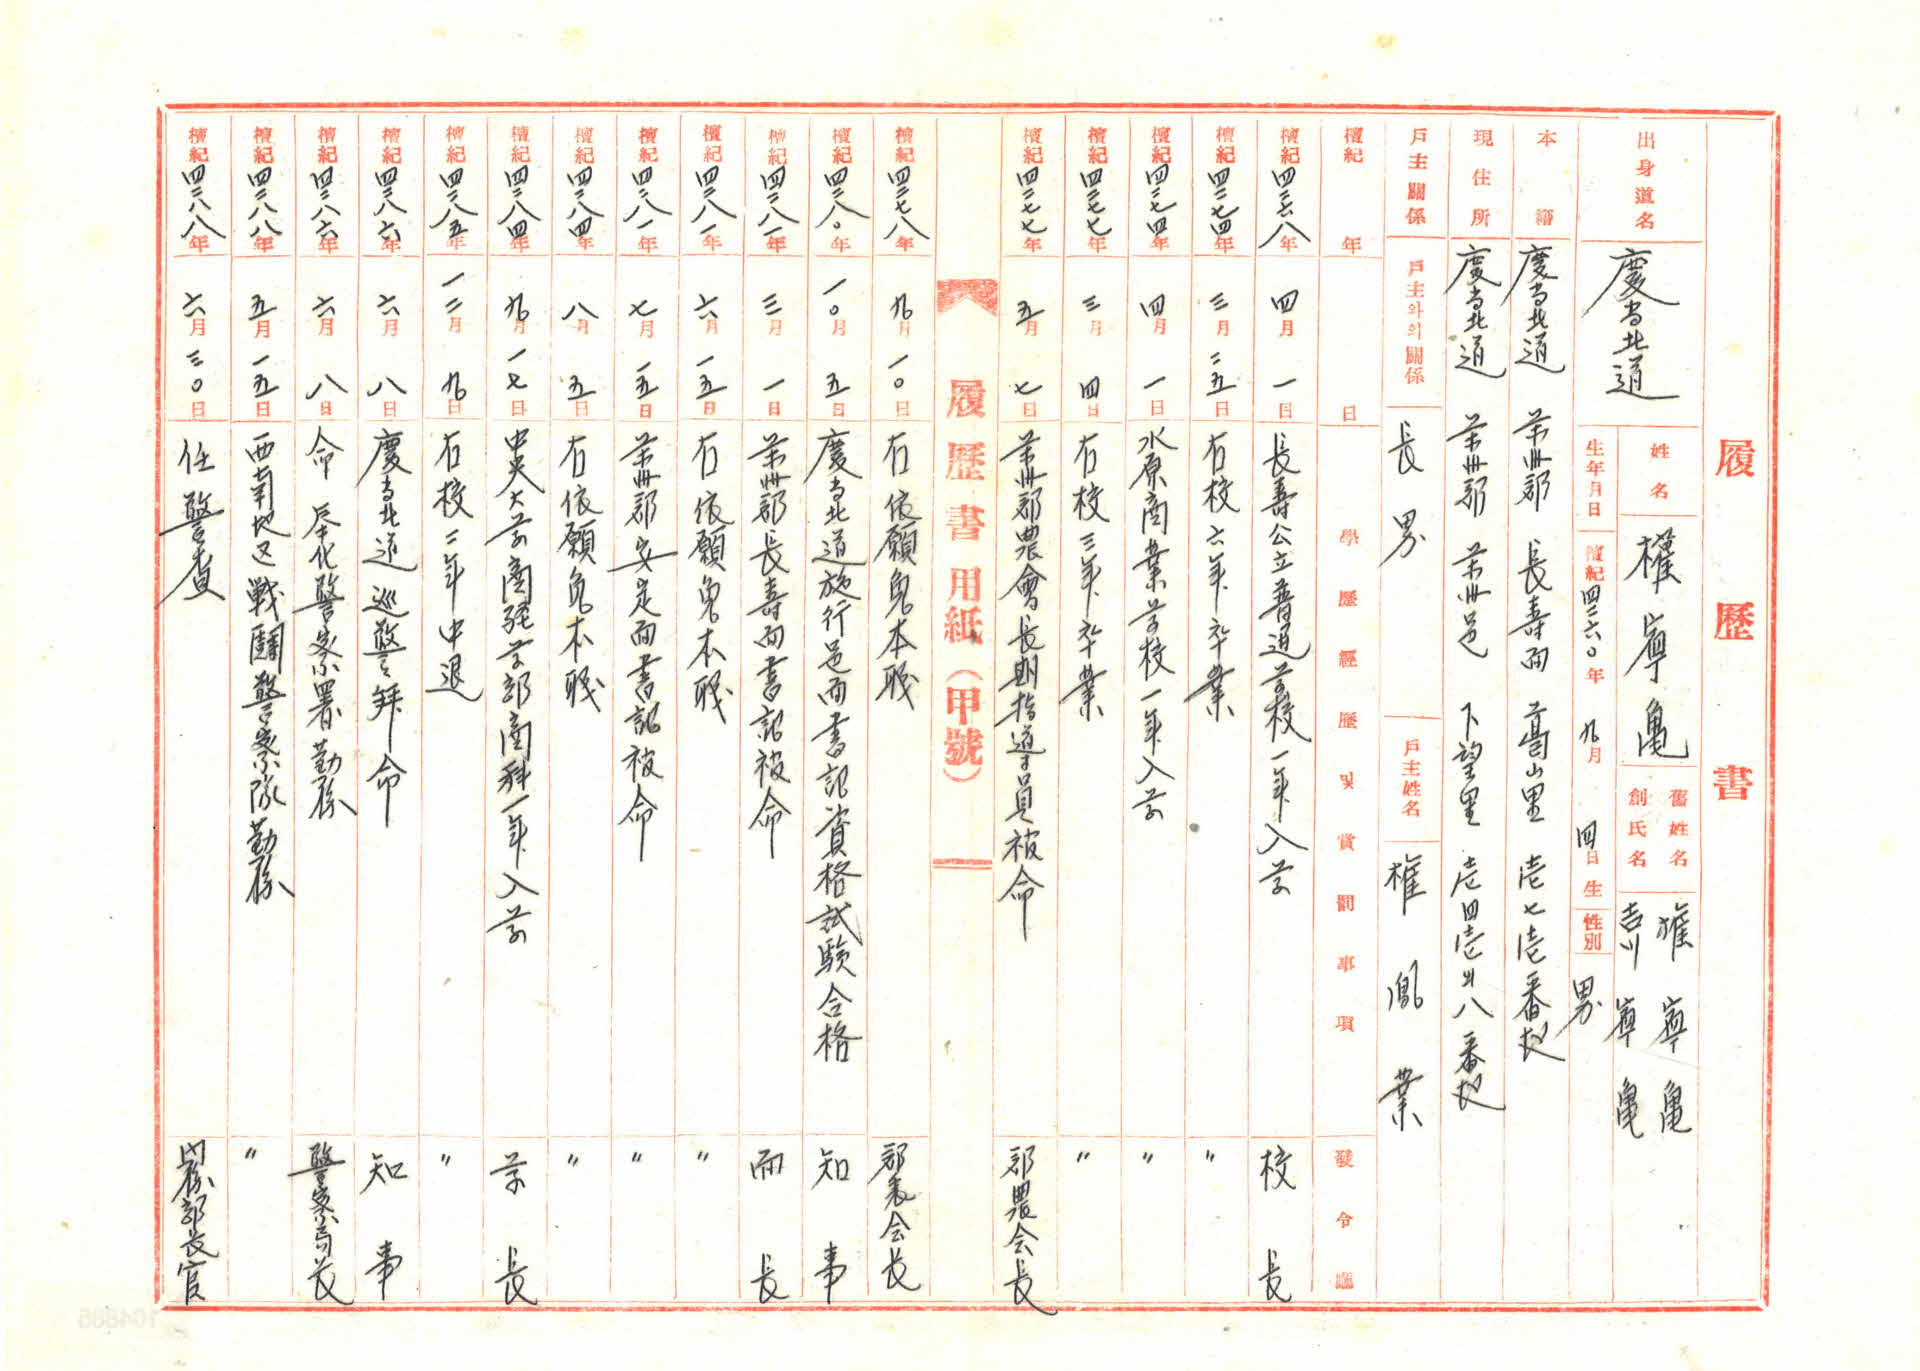 履歷書
出身道名 慶尙北道
姓名 權寧龜
舊姓名 權寧龜
創氏名 吉川寧龜
生年月日 檀紀四二六〇年 九月 四日生
性別 男
本籍 慶尙北道 榮州郡 長壽面 葛山里 壱七壱番地
現住所 慶尙北道 榮州郡 榮州邑 下望里 壱四壱의八番地
戶主關係 戶主와의關係 長男 戶主姓名 權鳳業
檀紀 年 月 日 學歷經歷및賞罰事項 發令廳
檀紀四二六八年 四月 一日 長壽公立普通学校一年入学 校長
檀紀四二七四年 三月 二五日 右校六年卒業 〃
檀紀四二七四年 四月 一日 水原商業学校一年入学 〃
檀紀四二七七年 三月 四日 右校三年卒業 〃
檀紀四二七七年 五月 七日 榮州郡農會長期指導員被命 郡農会長
履歷書用紙(甲號)
檀紀四二七八年 九月 一〇日 右依願免本職 郡農会長
檀紀四二八〇年 一〇月 五日 慶尙北道施行邑面書記資格試驗合格 知事
檀紀四二八一年 三月 一日 榮州郡長壽面書記被命 面長
檀紀四二八一年 六月 一五日 右依願免本職 〃
檀紀四二八一年 七月 一五日 榮州郡安定面書記被命 〃
檀紀四二八四年 八月 五日 右依願免本職 〃
檀紀四二八四年 九月 一七日 中央大学商経学部商科一年入学 学長
檀紀四二八五年 一二月 九日 右校二年中退 〃
檀紀四二八六年 六月 八日 慶尙北道巡警拜命 知事
檀紀四二八六年 六月 八日 命 奉化警察署勤務 警察局長
檀紀四二八八年 五月 一五日 西南地区戰鬪警察隊勤務 〃
檀紀四二八八年 六月 三〇日 任警査 內務部長官
104885